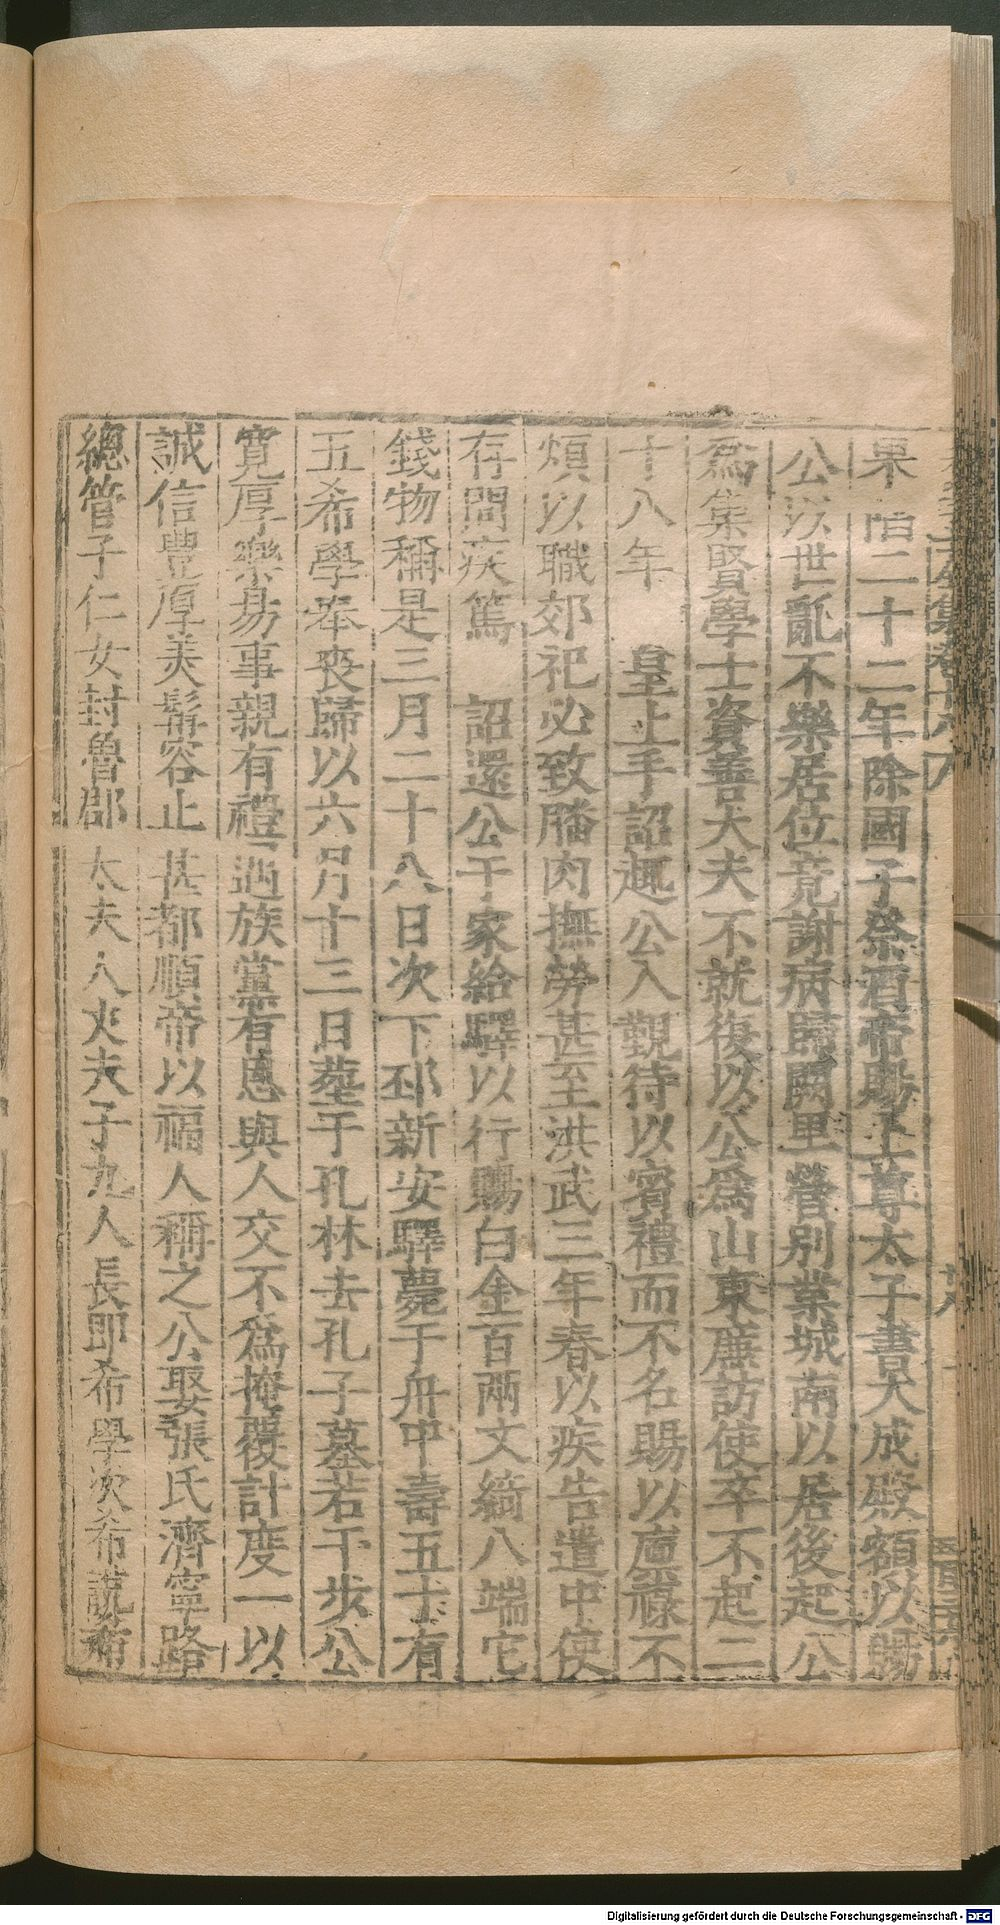 果 怡二十二年除國子祭酒帝賜上尊太子書大成殿額以賜
公以世亂不樂居位竟謝病歸闕里營別業城南以居後起公
爲集賢學士資善大夫不就復以公爲山東廉訪使卒不起二
十八年 皇上手詔趣公入覲待以賓禮而不名賜以廩祿不
煩以職郊祀必致膰肉撫勞甚至洪武三年春以疾告遣中使
存問疾篤 詔還公于家給驛以行賜白金百兩文綺八端它
錢物稱是三月二十八日次下邳新安驛薨于舟中壽五十有
五希學奉喪歸以六月十三日葬于孔林去孔子墓若干步公
寬厚樂易事親有禮遇族黨有恩與人交不爲掩覆計度一以
誠信豐厚美髯容止甚都順帝以福人稱之公娶張氏濟寧路
總管子仁女封魯郡太夫人丈夫子九人長即希學次希說希
Digitalisierung gefördert durch die Deutsche Forschungsgemeinschaft - DFG